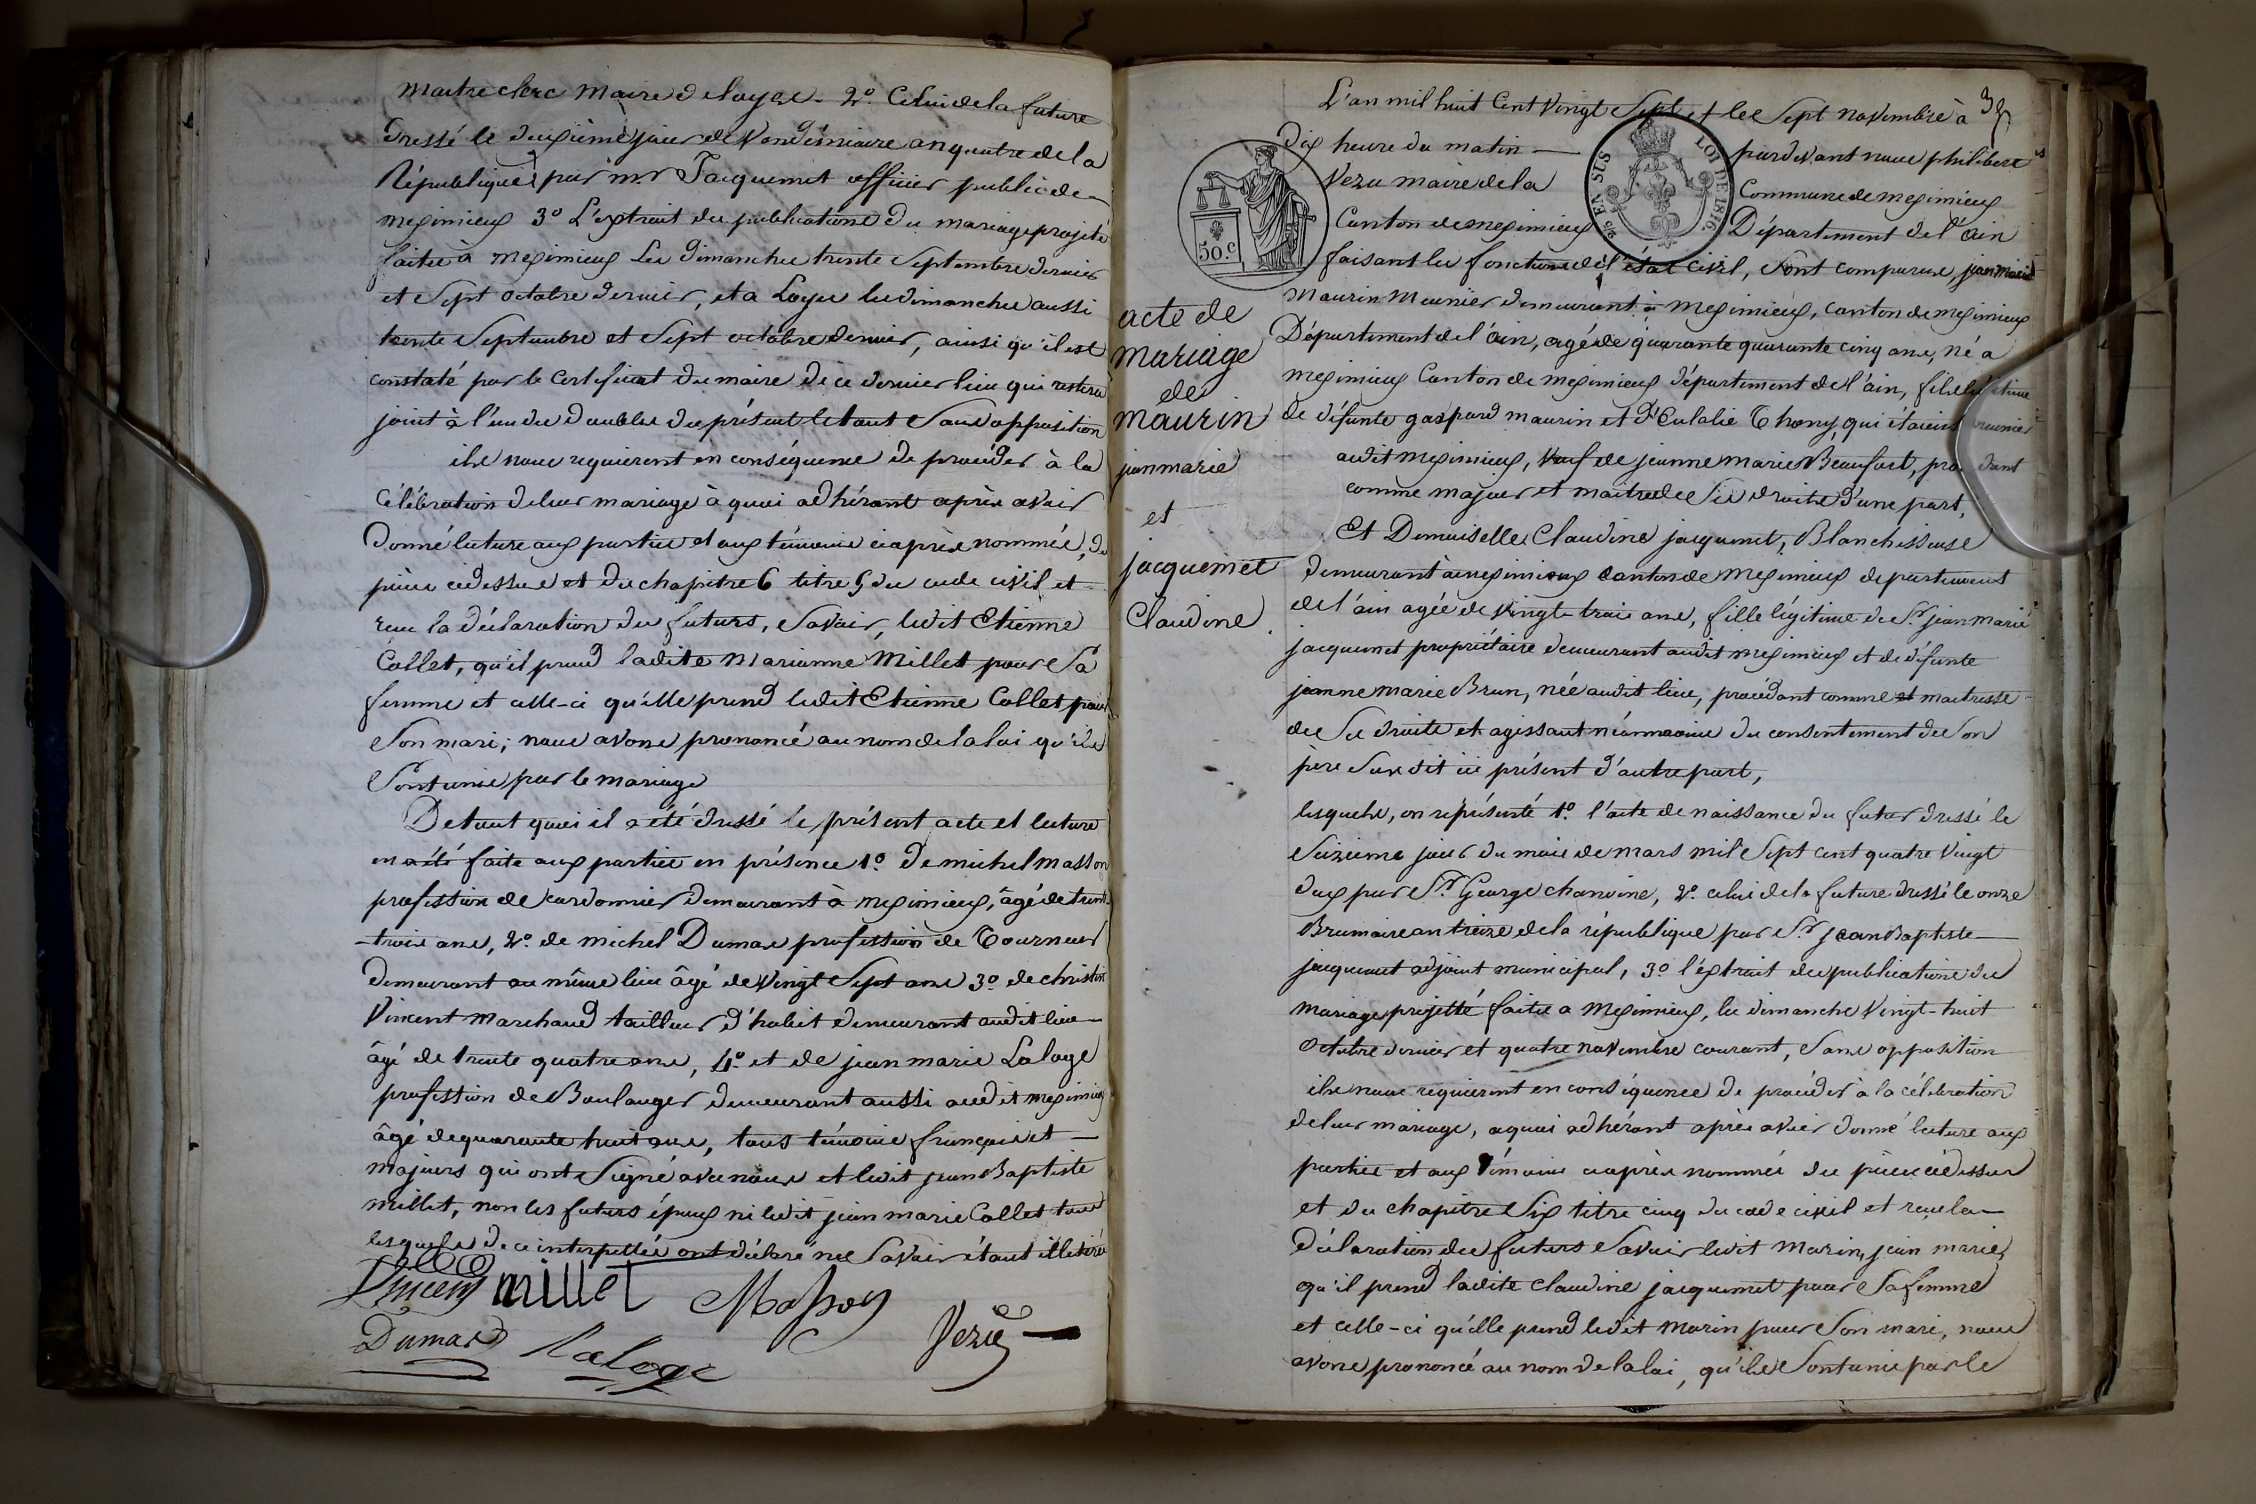 Maitre clerc Maire de loyes. 2º. Celui de la future
Dressé le deuxième jour de Vendémiaire an quatre de la
République par mr. Jacquemet officier public de
meximieux 3º L'extrait des publications du mariage projeté
faites à meximieux les dimanches trente Septembre dernier
et Sept octobre dernier, et a Loyes les dimanches aussi
trente Septembre et Sept octobre dernier, ainsi qu'il est
constaté par le Certificat du maire de ce dernier lieu qui restera
joint à l'un des doubles du présent le tout Sans opposition
ils nous requierent en conséquence de procéder à la
Célébration de leur mariage à quoi adhérant après avoir
Donné lecture aux parties et aux témoins ci après nommés, des
pièces ci dessus et du chapitre 6 titre 5 du code civil et
reçu la déclaration des futurs, Savoir, ledit Etienne
Collet, qu'il prend ladite Marianne Millet pour Sa
femme et celle-ci qu'elle prend ledit Etienne Collet pour
Son mari; nous avons prononcé au nom de la loi qu'ils
Sont unis par le mariage
De tout quoi il a été dressé le présent acte et lecture
en a été faite aux parties en présence 1º. De michel masson
profession de cordonnier demeurant à meximieux, âgé de trent
-trois ans, 2º. de michel Dumas profession de Tourneur
demeurant au même lieu âgé de Vingt Sept ans 3º. de christin
Vincent marchand tailleur d'habit demeurant audit lieu
âgé de trente quatre ans, 4º. et de jean marie Laloge
profession de Boulanger demeurant aussi audit meximieux
âgé de quarante huit ans, tous témoins français et
majeurs qui ont Signé avec nous et ledit jean Baptiste
millet, non les futurs époux ni ledit jean marie Collet tous
lesquels de ce interpellés ont déclaré ne Savoir étant illétérés
Vincent millet Masson
Dumas Laloge Vezu
38
L'an mil huit Cent Vingt Sept et les Sept novembre à
Dix heure du matin pardevant nous philibert
Vezu maire de la Commune de meximieux
Canton de meximieux Département de l'ain
faisant les fonctions de l'état civil, Sont comparus, jean marie
Maurin Meunier demeurant à meximieux, canton de meximieux
Département de l'ain, agé de quarante quarante cinq ans, né a
meximieux Canton de meximieux département de l'ain, fils légitime
de défunts gaspard maurin et d'Eulalie Thony, qui étaient meunier
audit meximieux, Veuf de jeanne marie Beaufort, procédant
comme majeur et maitre de Ses droits d'une part,
Et Demoiselle Claudine jacquemet, Blanchisseuse
demeurant à meximieux canton de meximieux departement
de l'ain agée de Vingt trois ans, fille légitime de Sr. jean marie
jacquemet propriétaire demeurant audit meximieux et de défunte
jeanne marie Brun, née audit lieu, procédant comme et maitresse
de Ses droits et agissant néanmoins du consentement de Son
père Susdit ici présent d'autre part,
lesquels, on réprésenté 1º. l'acte de naissance du futur dressé le
Seizieme jour du mois de mars mil Sept cent quatre Vingt
deux par Sr. George chanoine, 2º. celui de la future dressé le onze
Brumaire an treize de la république par Sr. jean Baptiste
jacquemet adjoint municipal, 3º. l'extrait des publications du
mariage projetté faites a meximieux, les dimanche Vingt-huit
octobre dernier et quatre novembre courant, Sans opposition
ils nous requierent en conséquence de procéder à la célébration
de leur mariage, a quoi adhérant après avoir donné lecture aux
parties et aux témoins ci après nommés des pièces ci dessus
et du chapitre Six titre cinq du code civil et reçu la
déclaration des futurs Savoir ledit Marin, jean marie,
qu'il prend ladite claudine jacquemet pour Sa femme
et celle-ci qu'elle prend ledit Marin pour Son mari, nous
avons prononcé au nom de la loi, qu'ils Sont unis par le
acte de
mariage
de
maurin
jean marie
et
jacquemet
Claudine
50.c
25 EN SUS
LOI DE 1816